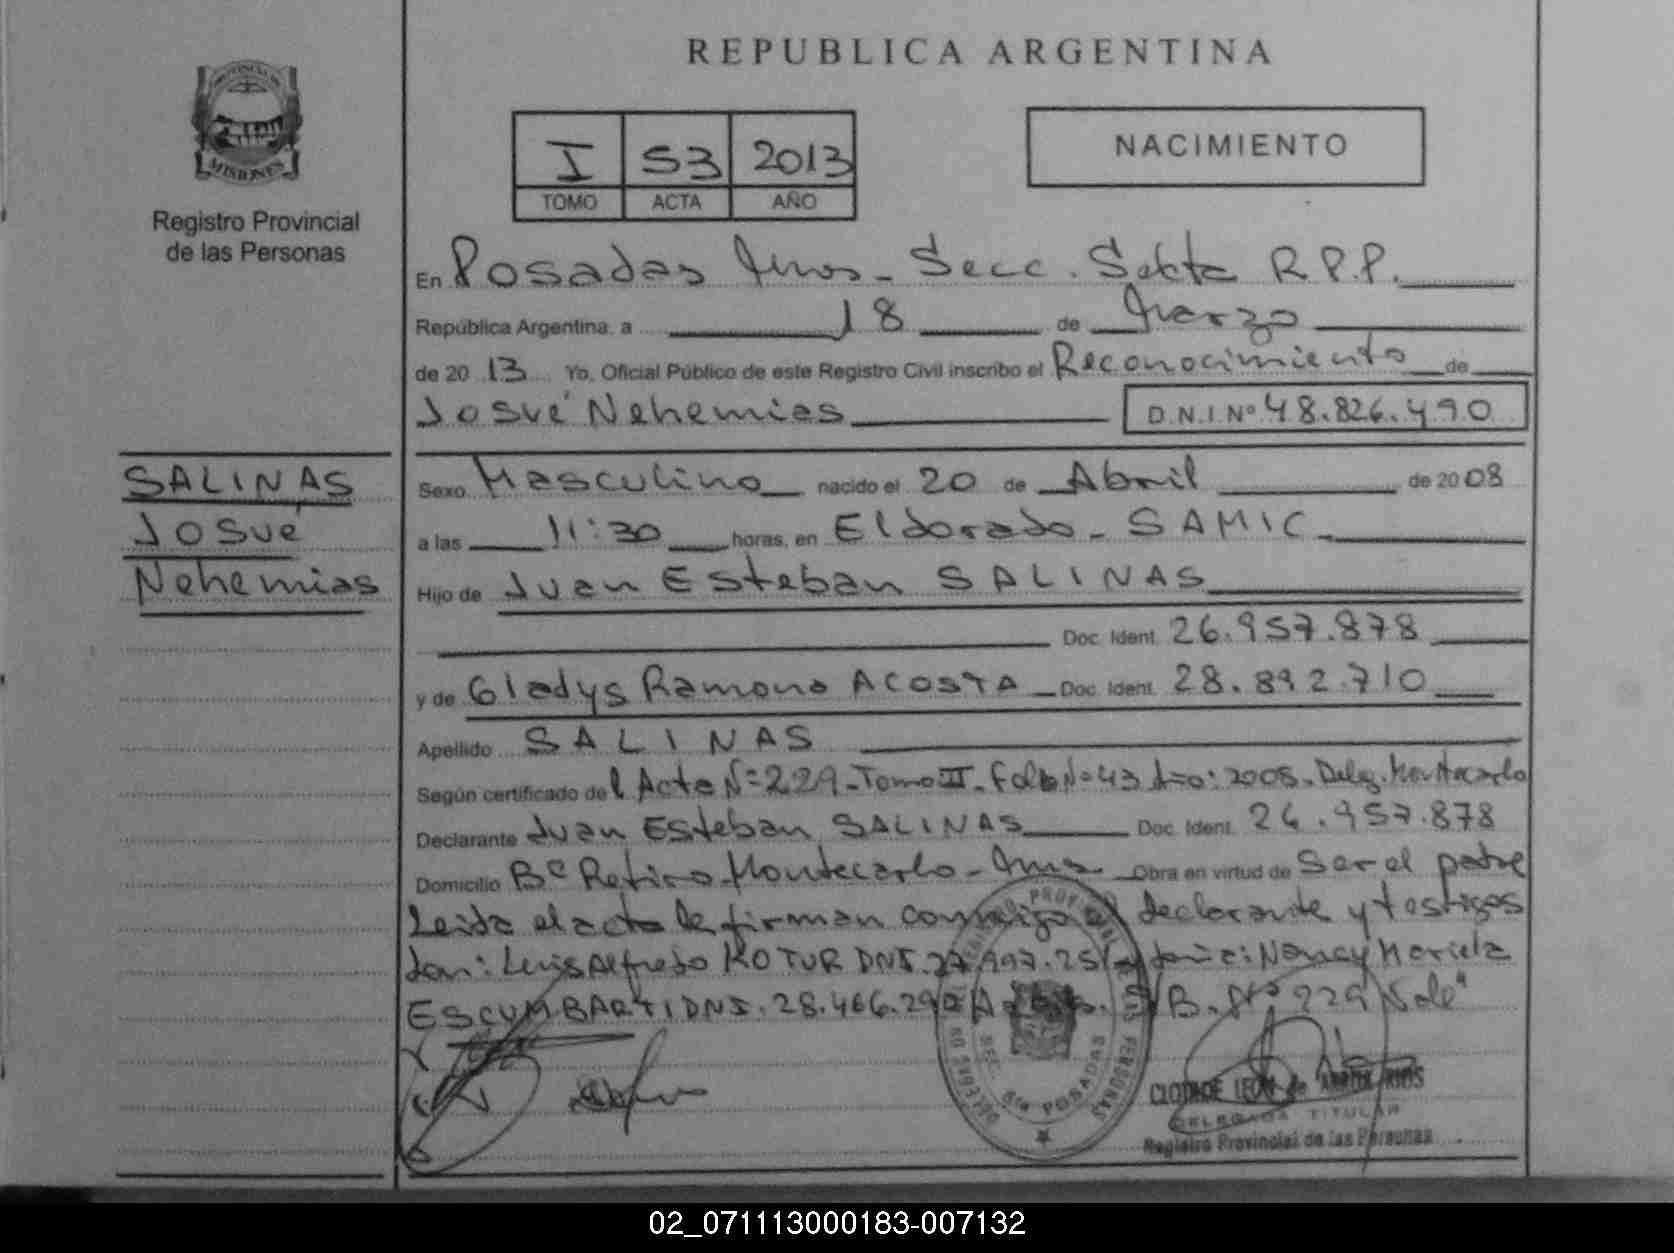 REPUBLICA ARGENTINA
PROVINCIA DE
MISIONES
Registro Provincial
de las Personas
I 53 2013
TOMO ACTA AÑO
NACIMIENTO
En Posadas Mnes - Secc. Sexta R.P.P.
República Argentina. a 18 de Marzo
de 2013 Yo, Oficial Público de este Registro Civil inscribo el Reconocimiento de
Josué Nehemias D.N.I. Nº 48.826.490
SALINAS
Josué
Nehemias
Sexo Masculino nacido el 20 de Abril de 2008
a las 11:30 horas, en Eldorado - SAMIC.
Hijo de Juan Esteban SALINAS
Doc. Ident. 26.957.878
y de Gladys Ramona ACOSTA Doc. Ident. 28.892.710
Apellido SALINAS
Según certificado del Acta Nº 229 - Tomo II - Folio Nº 43 Año: 2008 - Deleg. Montecarlo
Declarante Juan Esteban SALINAS Doc. Ident. 26.957.878
Domicilio Bº Retiro - Montecarlo - Mnes Obra en virtud de Ser el padre
Leida el acta la firman conmigo el declarante y testigos
Luis Alfredo KOTUR DNI. 27.997.251 Nancy Mariela
ESCUMBARTI DNI. 28.466.29 B. Nº 229 Vale"
SEC. 6ta POSADAS
CLOTILDE LEON de
DELEGADA TITULAR
Registro Provincial de las Personas
02_071113000183-007132